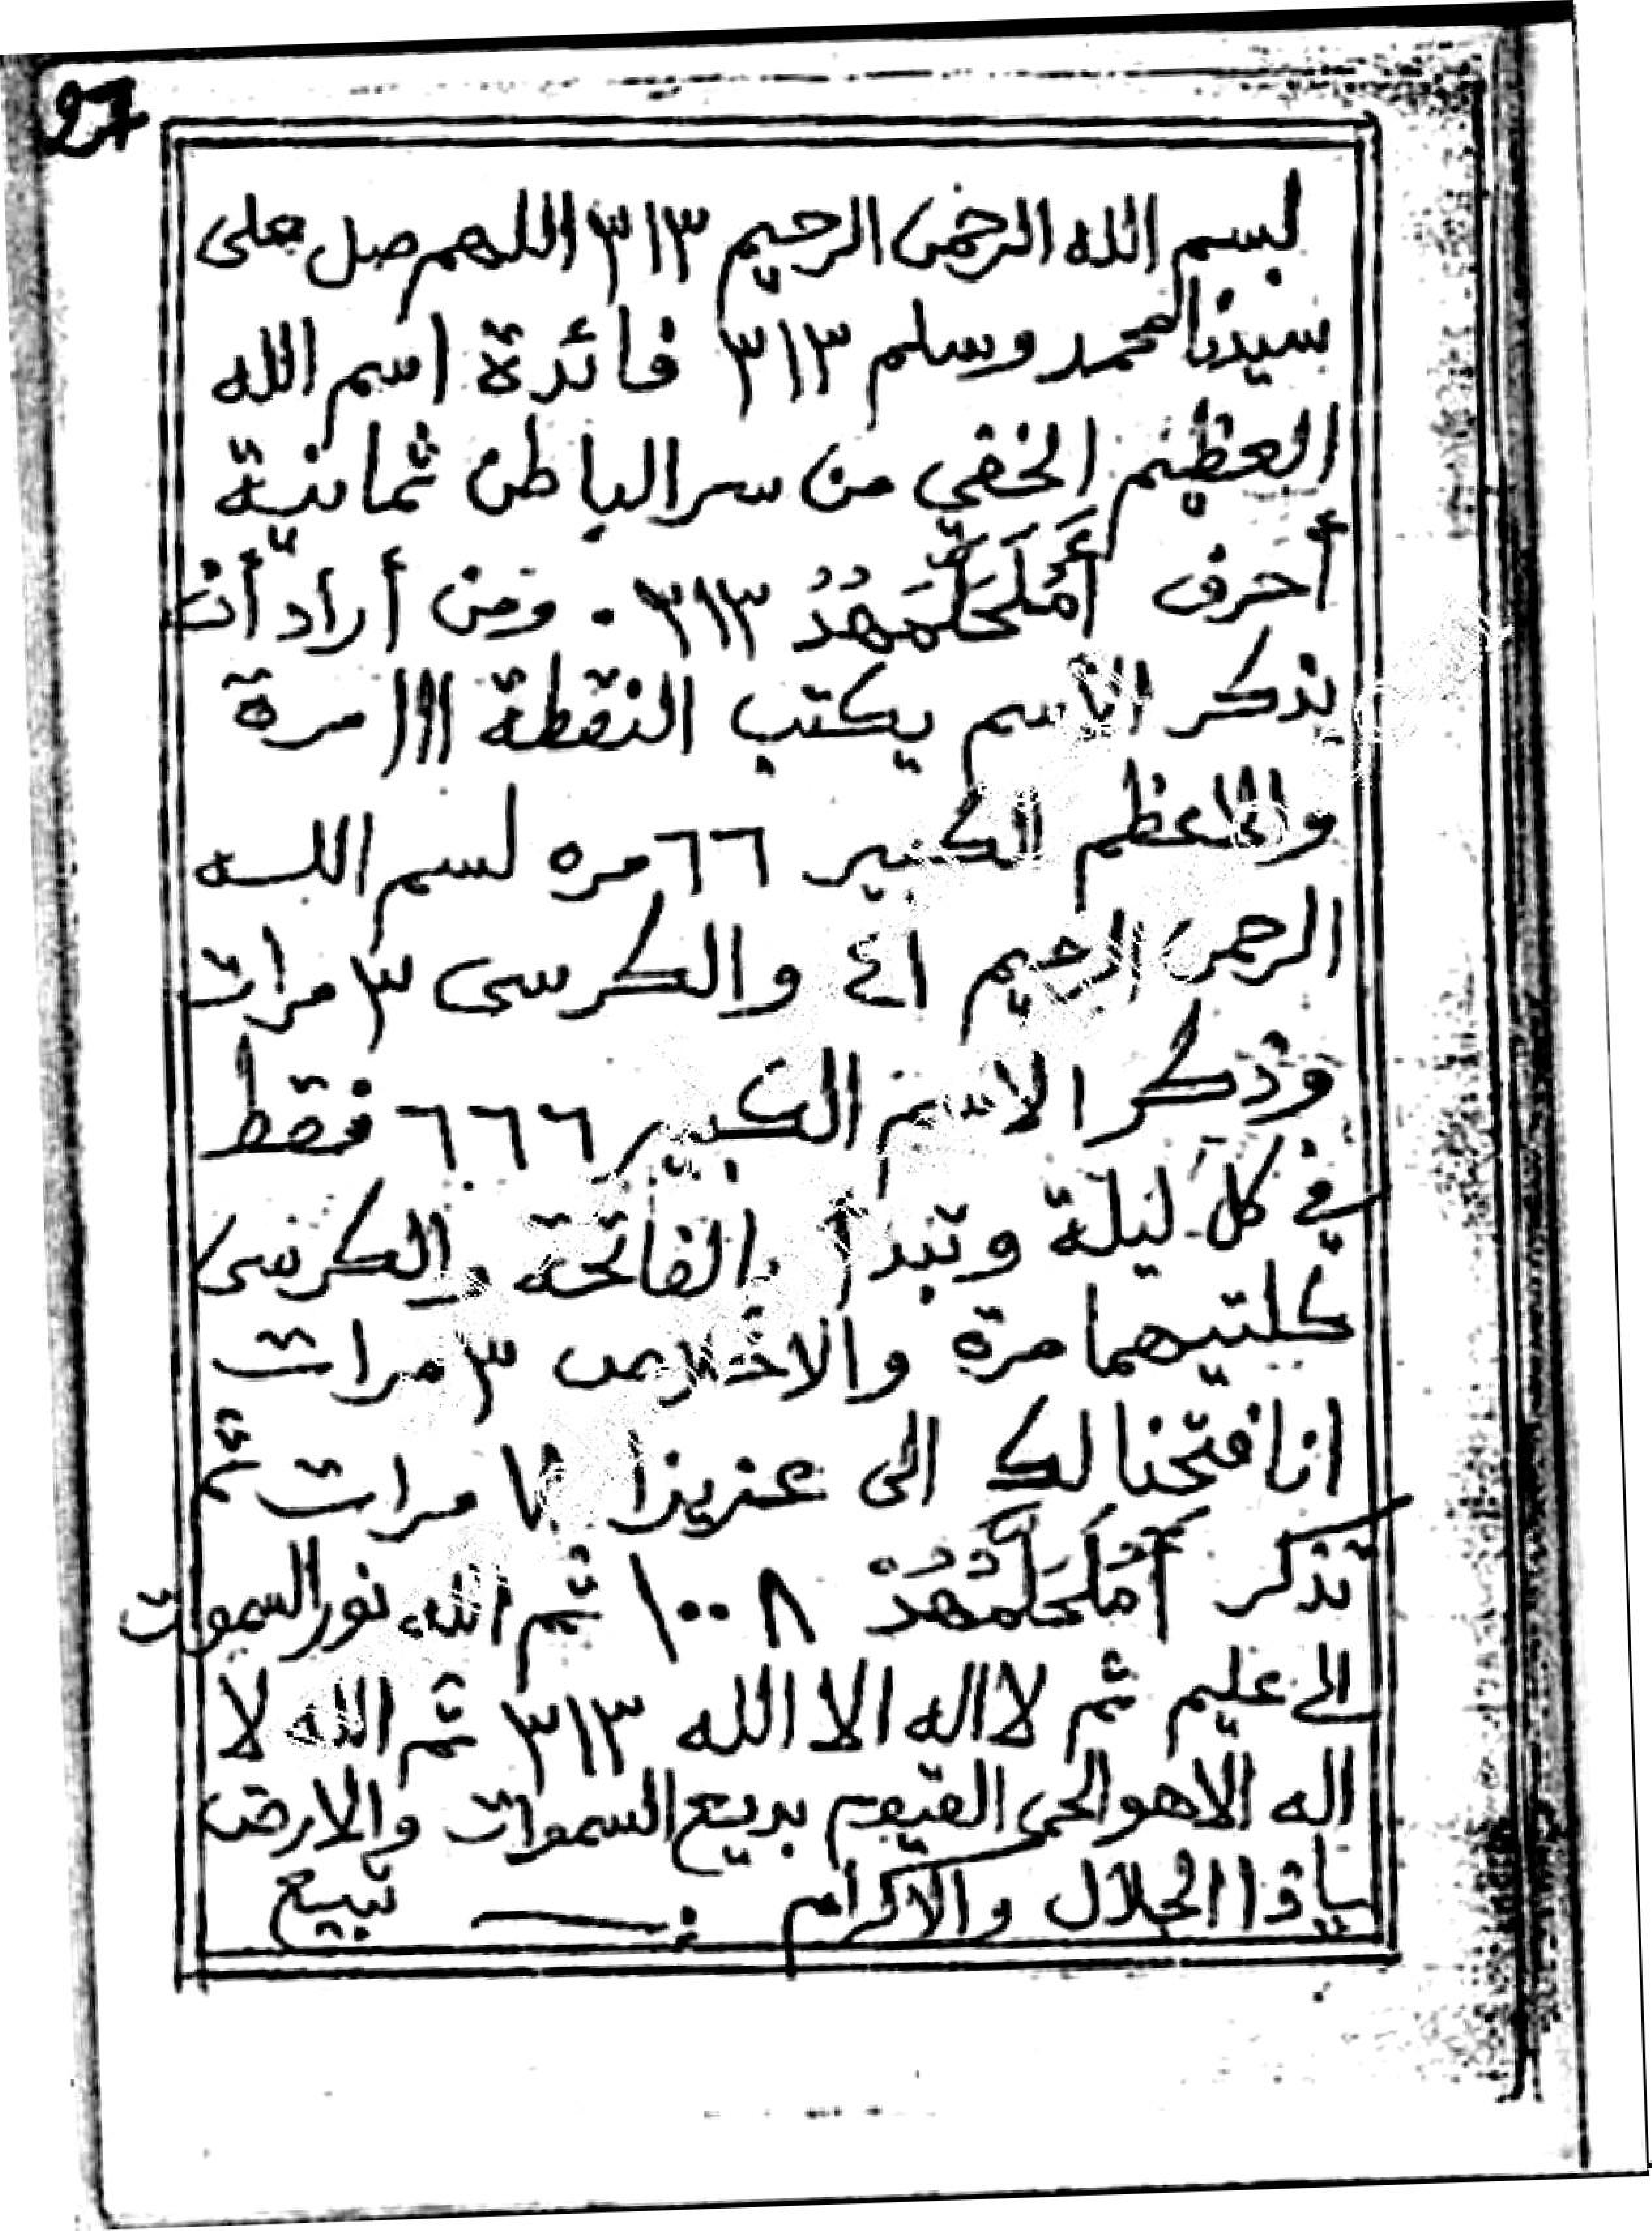 27
بسم الله الرحمن الرحيم ٣١٣ اللهم صل على
سيدنا محمد وسلم ٣١٣ فائدة اسم الله
العظيم الخفي من سر الباطن ثمانية
أحرف ٣١٣ . ومن أراد أن
يذكر الاسم يكتب النقطة ١١١ مرة
والاعظم الكبير ٦٦ مره بسم الله
الرحمن الرحيم ٤١ والكرسى ٣ مرات
وذكر الاسم الكبير ٦٦٦ فقط
في كل ليلة وتبدأ بالفاتحة والكرسى
كلتيهما مرة والاخلاص ٣ مرات
انا فتحنا لك الى عزيزا ٧ مرات ثم
تذكر ١٠٠٨ ثم الله نور السموات
الى عليم ثم لا اله الا الله ٣١٣ ثم الله لا
اله الا هو الحى القيوم بديع السموات والارض
ياذا الجلال والاكرام تبيع